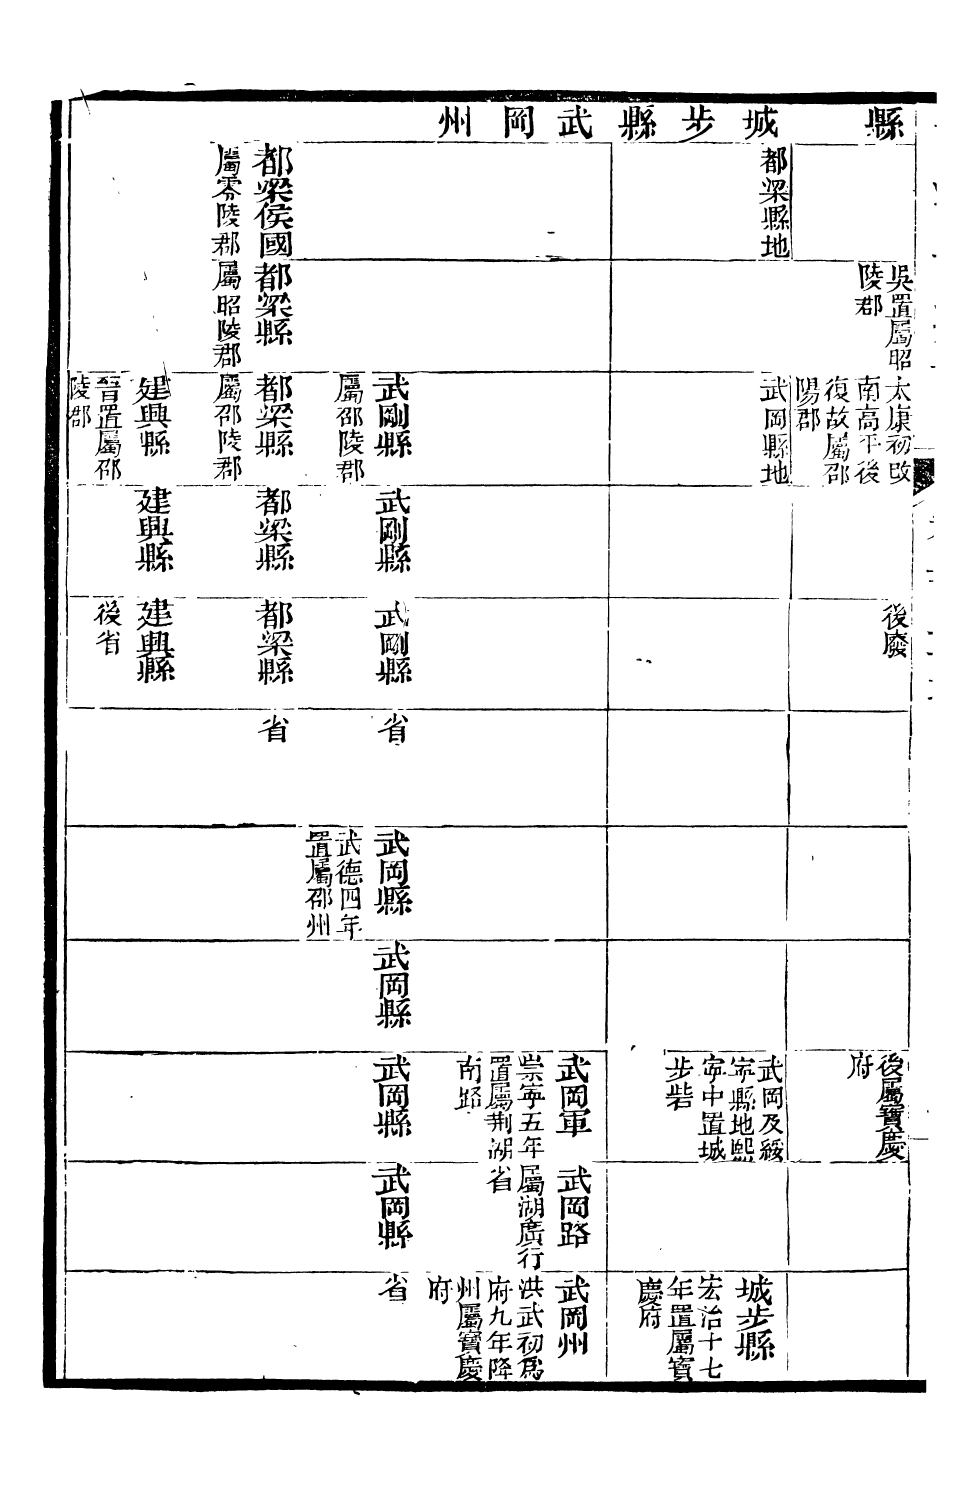 縣
城步縣
武岡州
吳置屬昭
陵郡
太康初改
南高平後
復故屬邵
陽郡
後廢
後屬寶慶
府
都梁縣地
武岡縣地
武岡及綏
寧縣地熙
寧中置城
步砦
城步縣
宏治十七
年置屬寶
慶府
武岡軍
崇寧五年
置屬荆湖
南路
武岡路
屬湖廣行
省
武岡州
洪武初爲
府九年降
州屬寶慶
府
武剛縣
屬邵陵郡
武剛縣
武剛縣
省
武岡縣
武德四年
置屬邵州
武岡縣
武岡縣
武岡縣
省
都梁侯國
屬零陵郡
都梁縣
屬昭陵郡
都梁縣
屬邵陵郡
都梁縣
都梁縣
省
建興縣
晉置屬邵
陵郡
建興縣
建興縣
後省